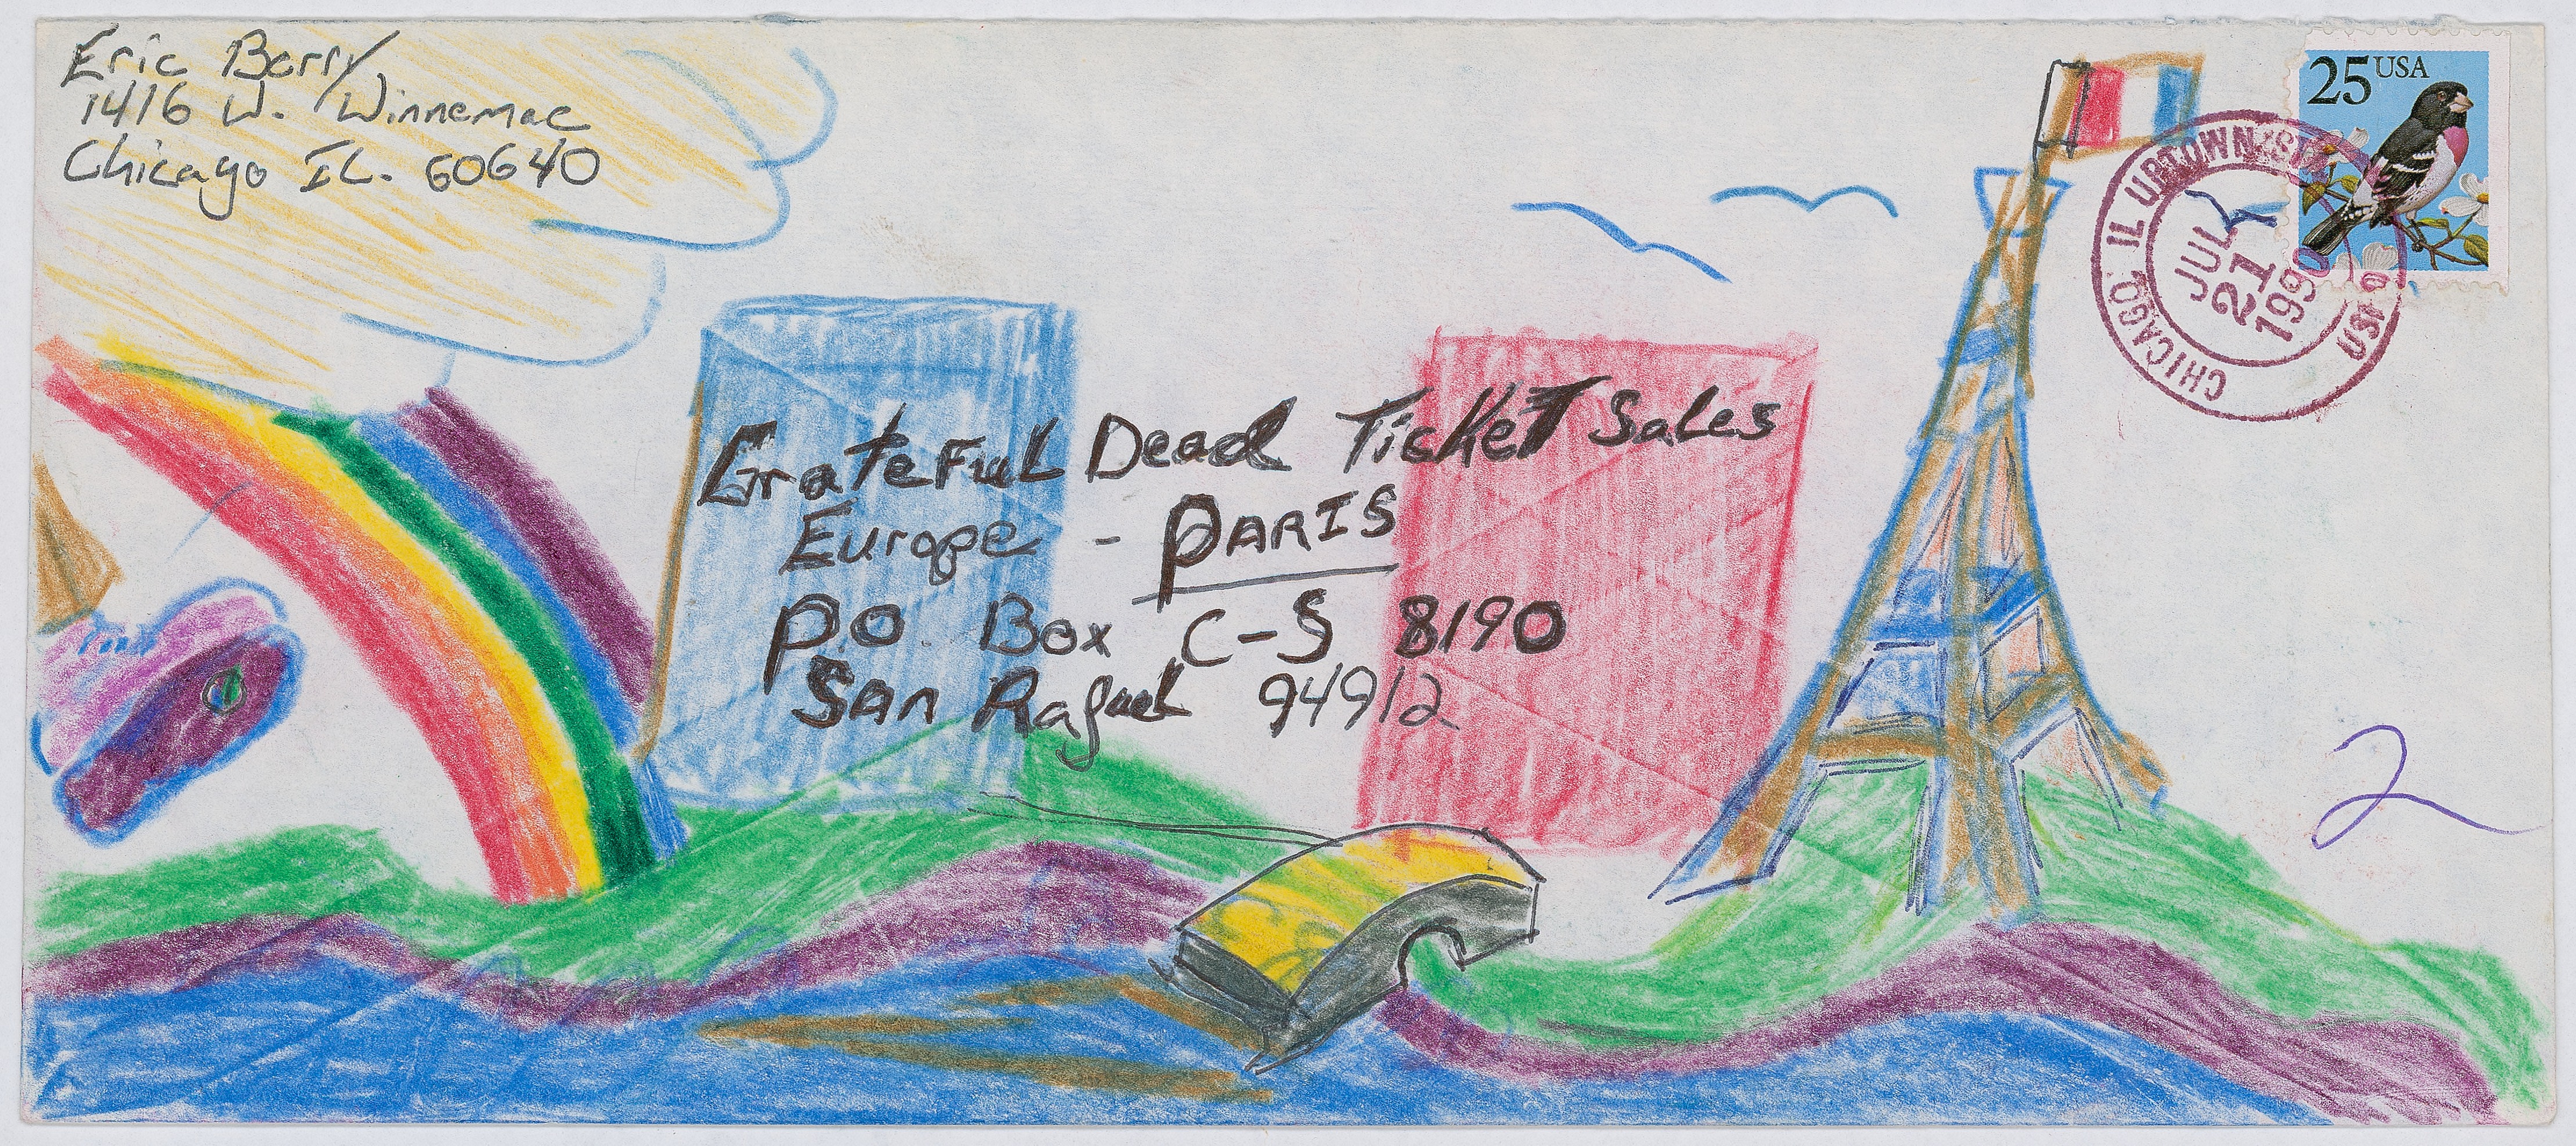 Eric Barry
1416 W. Winnemac
Chicago IL. 60640
25 USA
CHICAGO, IL UPTOWN STA
JUL
21
1990
USPO
Grateful Dead Ticket Sales
Europe - PARIS
P.O. Box C-S 8190
San Rafael 94912
2